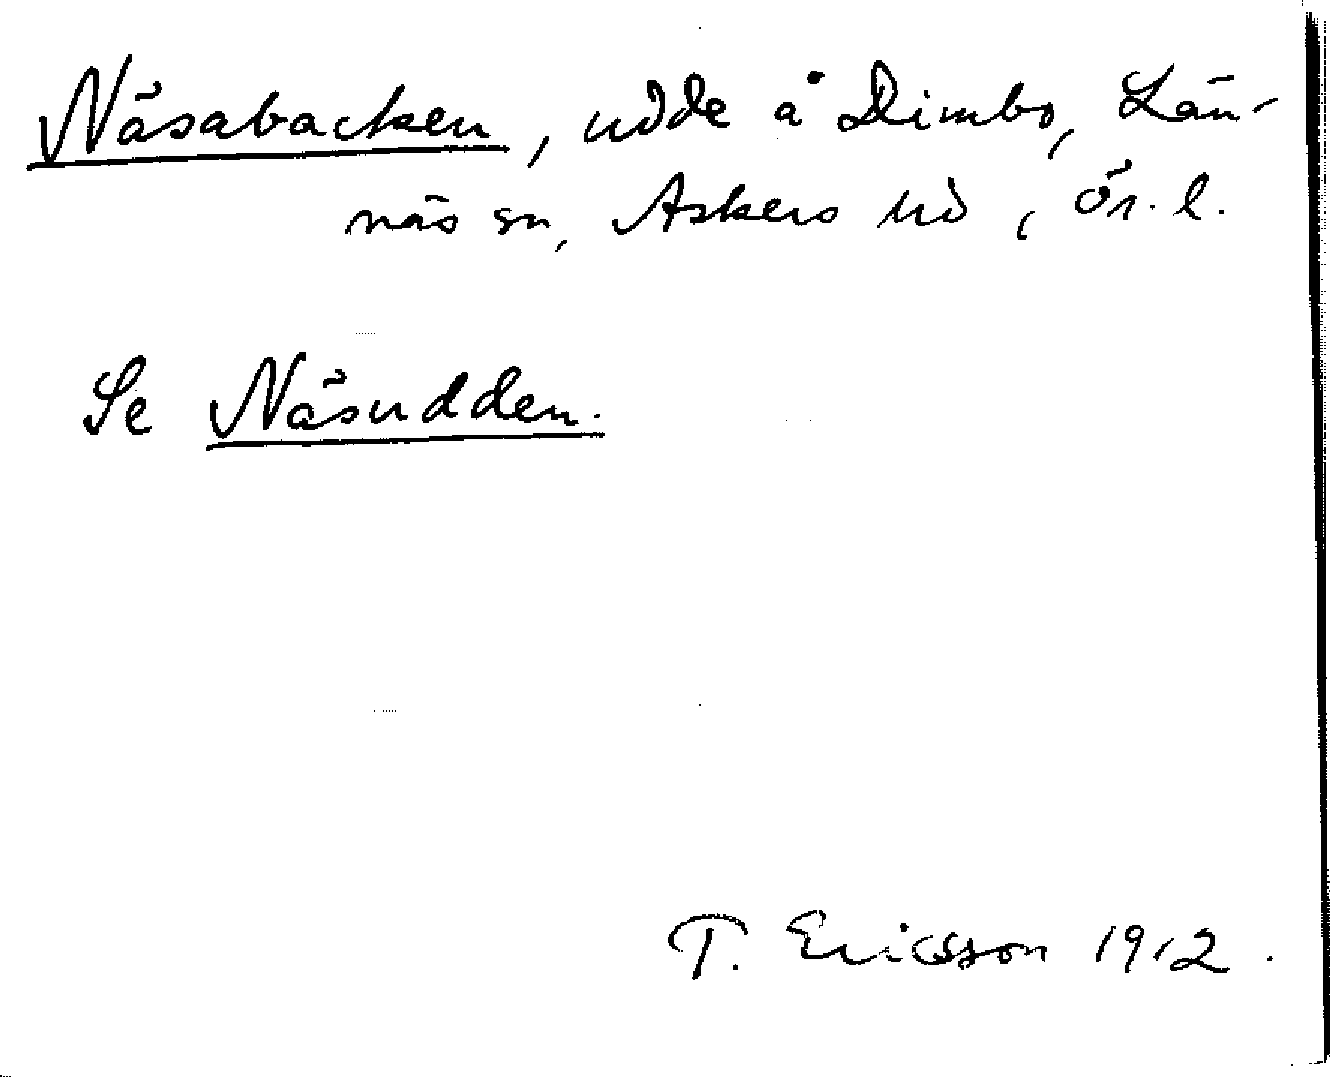 Näsabacken, udde å Dimbo, Län-
näs sn, Askers hd, Ör. l.
Se Näsudden.
T. Ericsson 1912.